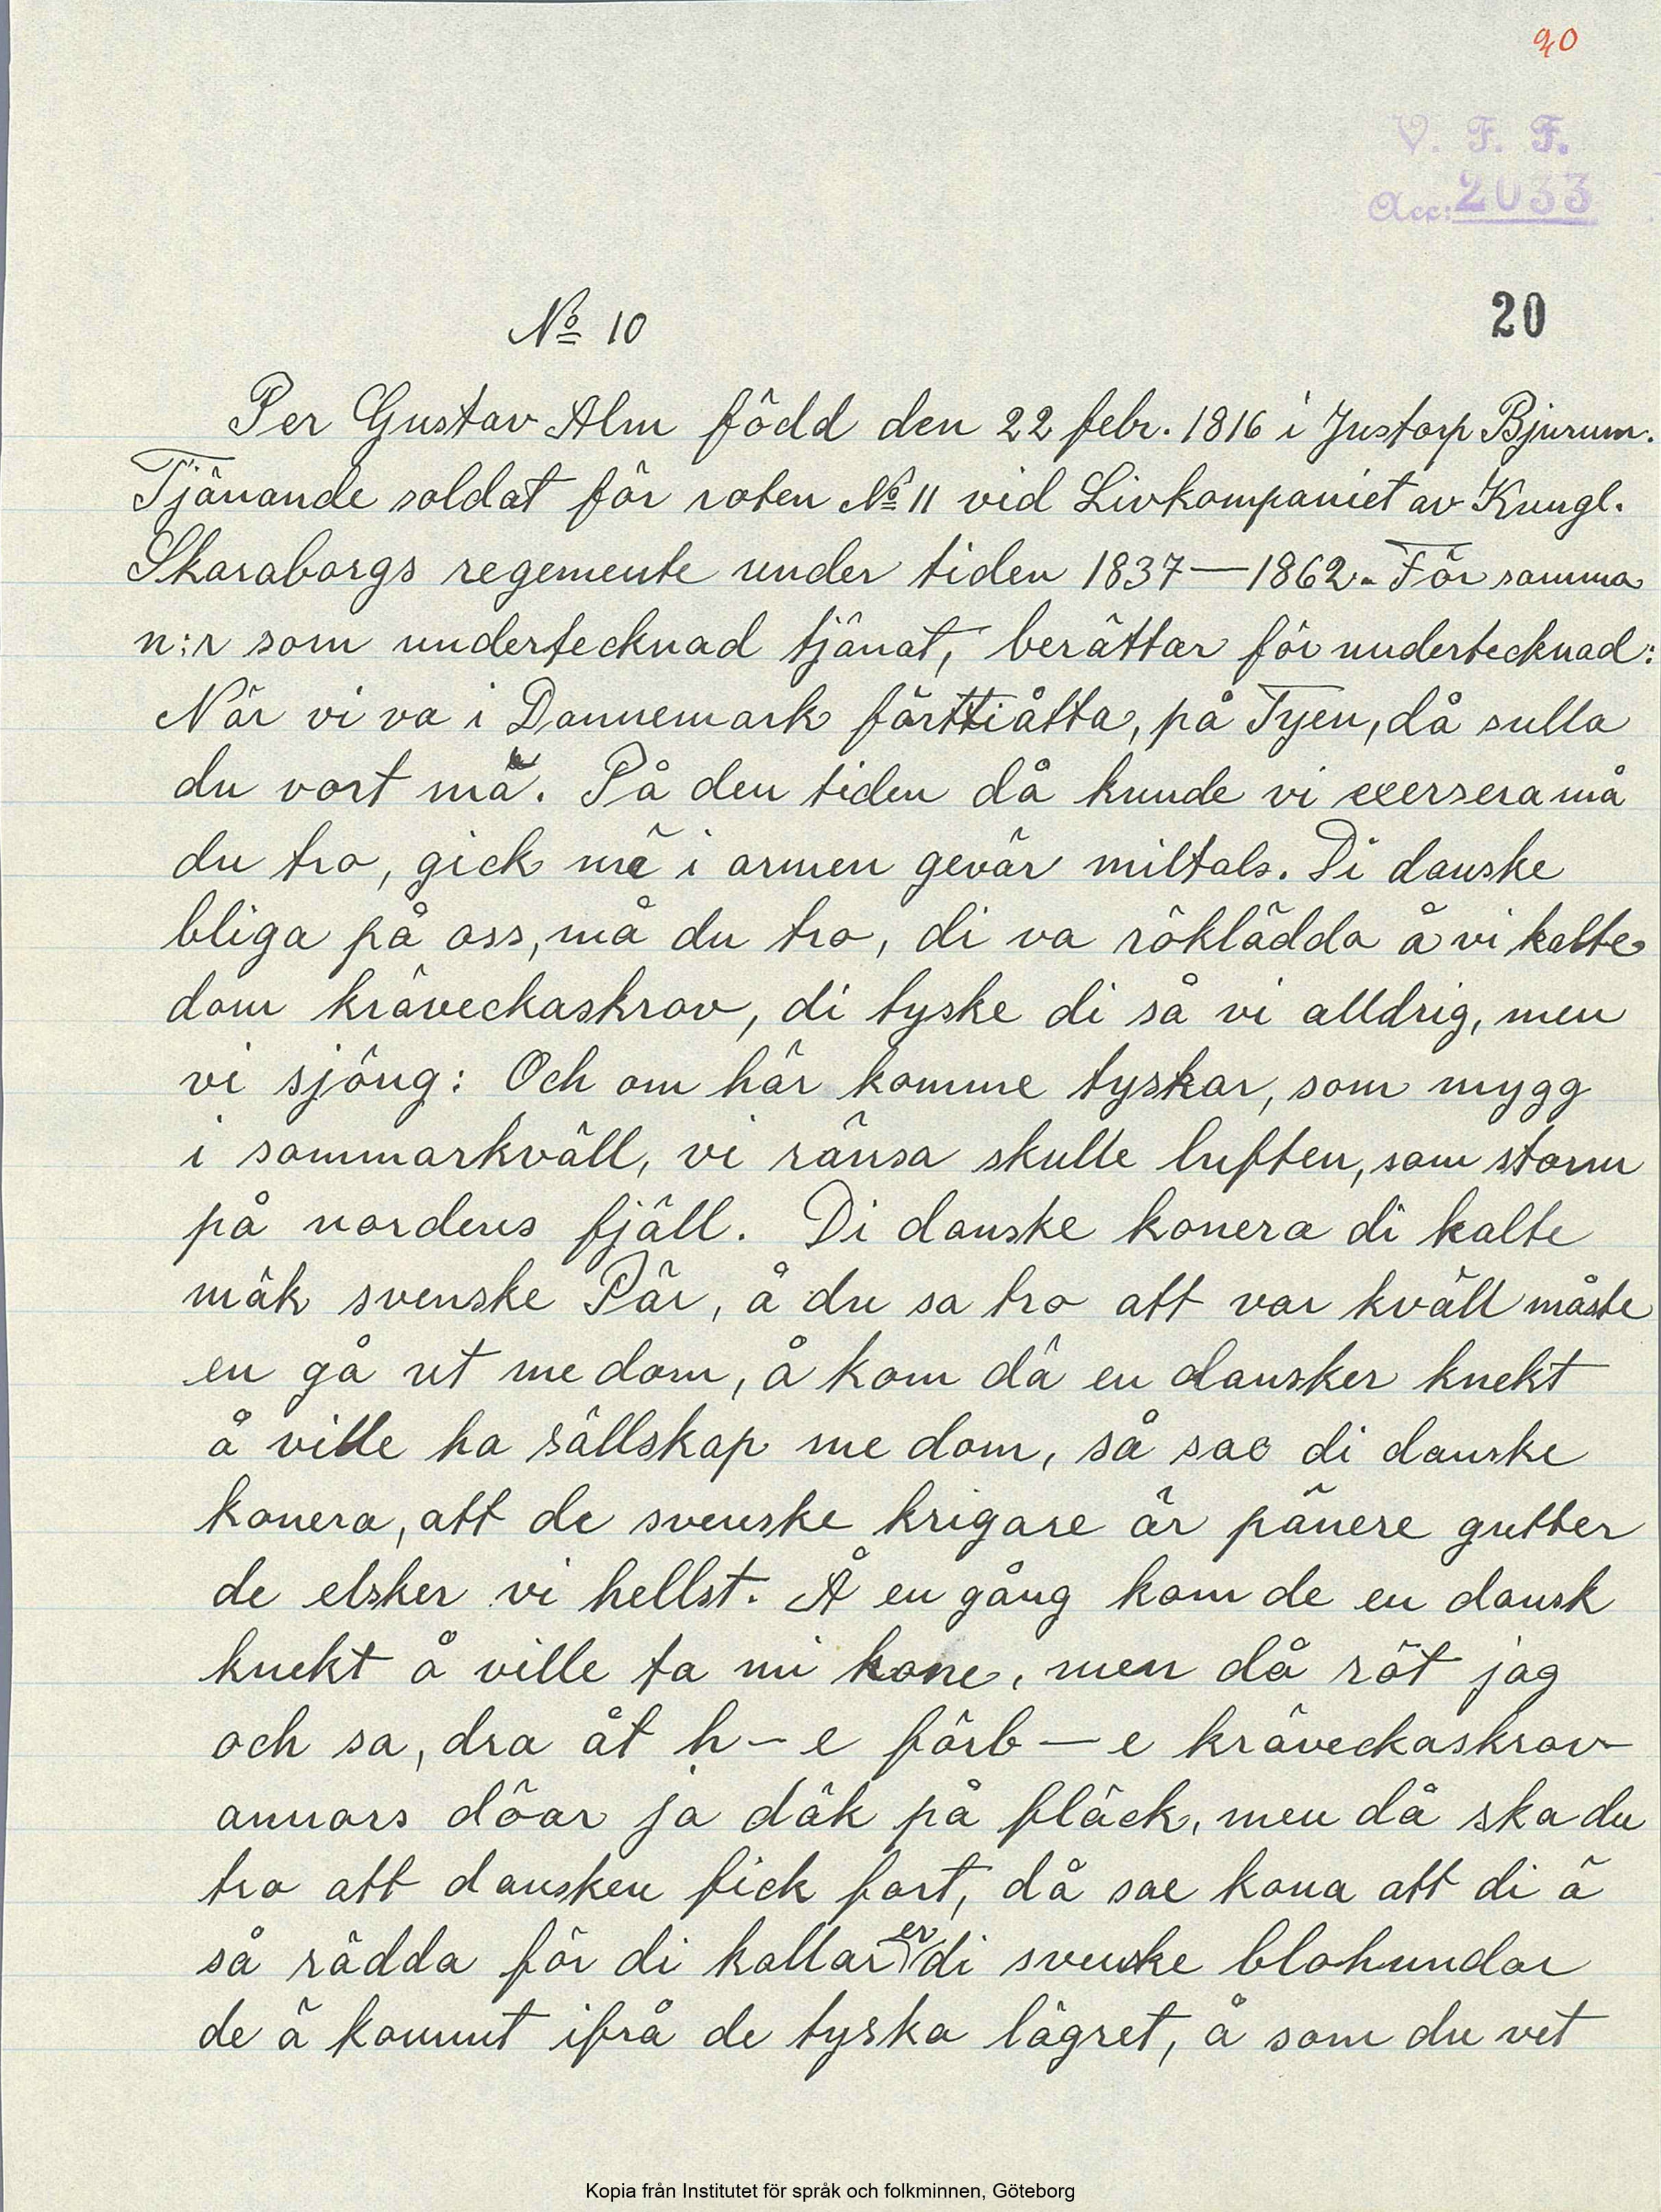 20
V. F. F.
Acc: 2033
No 10
20
Per Gustav Alm född den 22 febr. 1816 i Justorp Bjurum.
Tjänande soldat för roten No 11 vid Livkompaniet av Kungl.
Skaraborgs regemente under tiden 1837—1862. För samma
n:r som undertecknad tjänat, berättar för undertecknad:
När vi va i Dannemarkförttiåtta, på Fyen, då sulla
du vort mä. På den tiden då kunde vi exersera må
du tro, gick mä i armen gevär miltals. Di danske
bliga på oss, må du tro, di va röklädda å vi kalte
dom kräveckaskrov, di tyske di så vi alldrig, men
vi sjöng: Och om här komme tyskar, som mygg
i sommarkväll, vi ränsa skulle luften, som storm
på nordens fjäll. Di danske konera di kalte
mäk svenske Pär, å du sa tro att var kväll måste
en gå ut me dom, å kom dä en dansker knekt
å ville ha sällskap me dom, så sae di danske
konera, att de svenske krigare är pänere gutter
de elsker vi hellst. Å en gång kom de en dansk
knekt å ville ta mi kone, men då röt jag
och sa, dra åt h-e förb—e kräveckaskrov
annars döar ja däk på fläck, men då ska du
tro att dansken fick fort, då sae kona att di ä
så rädda för di kallar er di svenske blohundar
de ä kommt ifrå de tyska lägret, å som du vet
Kopia från Institutet för språk och folkminnen, Göteborg